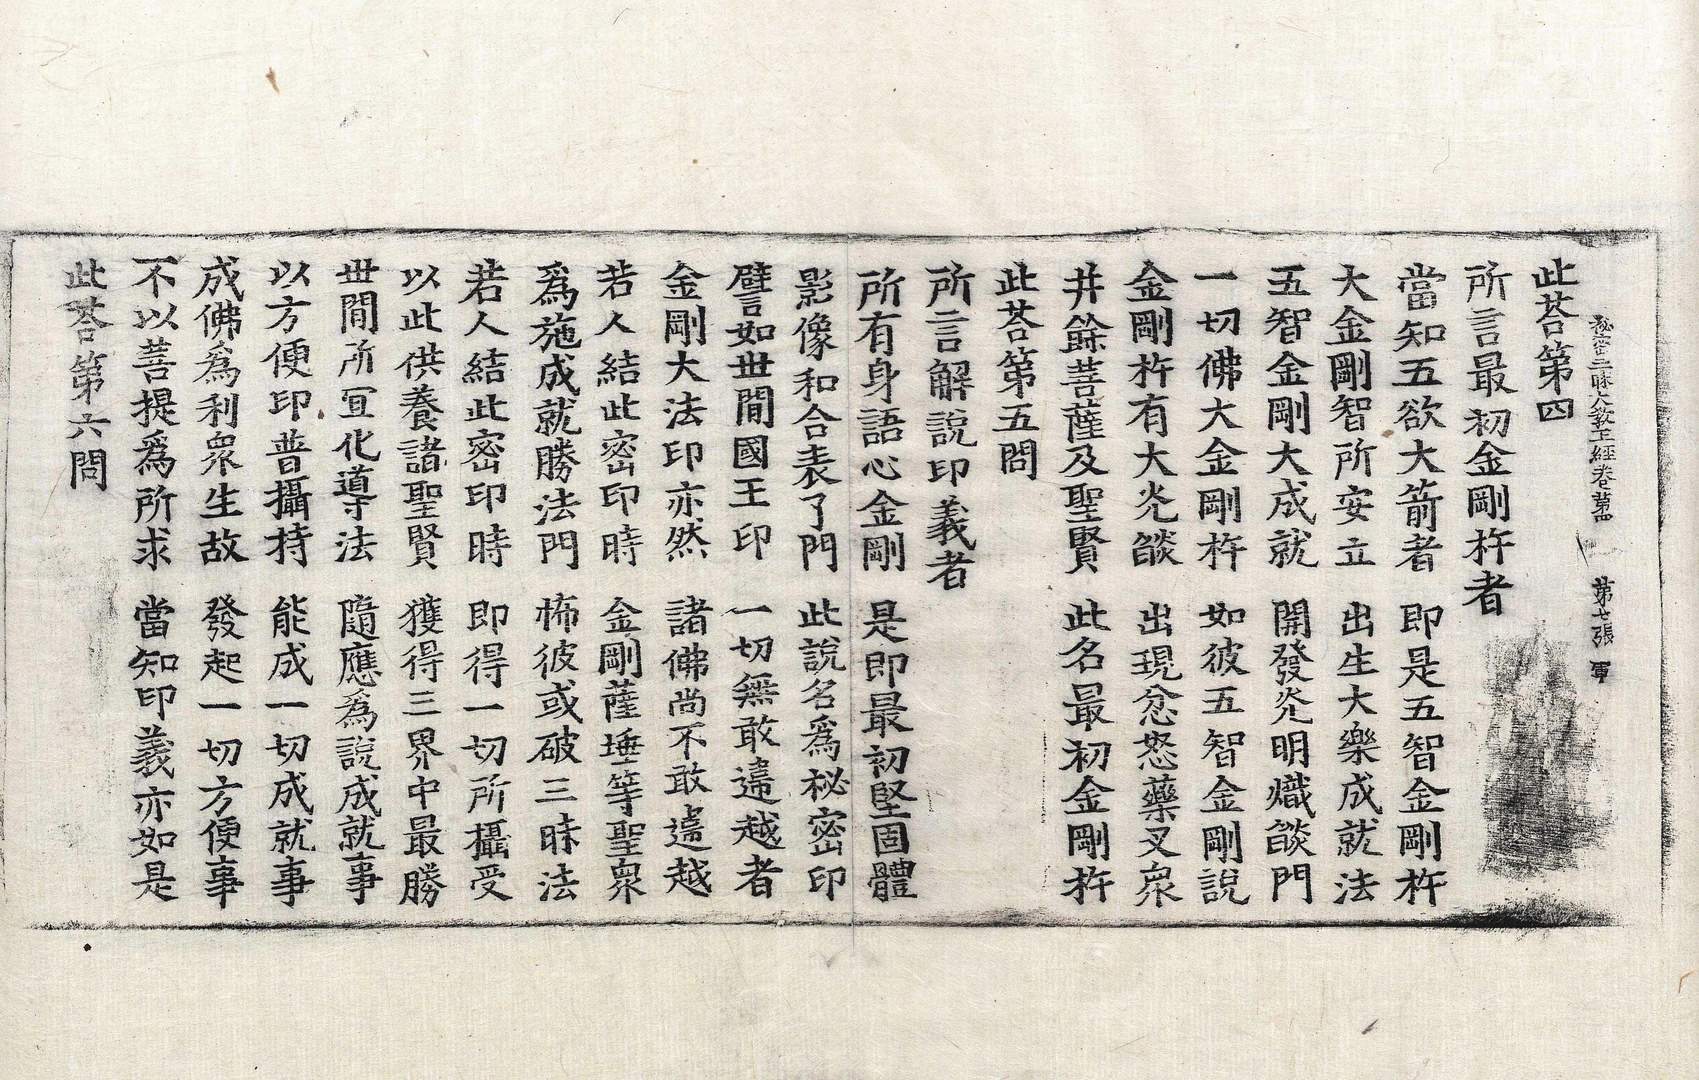 秘密三昧大教王經卷第四 第七張 軍
此荅第四
所言最初金剛杵者
當知五欲大箭者 即是五智金剛杵
大金剛智所安立 出生大樂成就法
五智金剛大成就 開發光明熾燄門
一切佛大金剛杵 如彼五智金剛說
金剛杵有大光燄 出現忿怒藥叉衆
并餘菩薩及聖賢 此名最初金剛杵
此荅第五問
所言解說印義者
所有身語心金剛 是即最初堅固體
影像和合表了門 此說名爲秘密印
譬如世間國王印 一切無敢違越者
金剛大法印亦然 諸佛尚不敢違越
若人結此密印時 金剛薩埵等聖衆
爲施成就勝法門 怖彼或破三昧法
若人結此密印時 即得一切所攝受
以此供養諸聖賢 獲得三界中最勝
世間所冝化導法 隨應爲說成就事
以方便印普攝持 能成一切成就事
成佛爲利衆生故 發起一切方便事
不以菩提爲所求 當知印義亦如是
此荅第六問